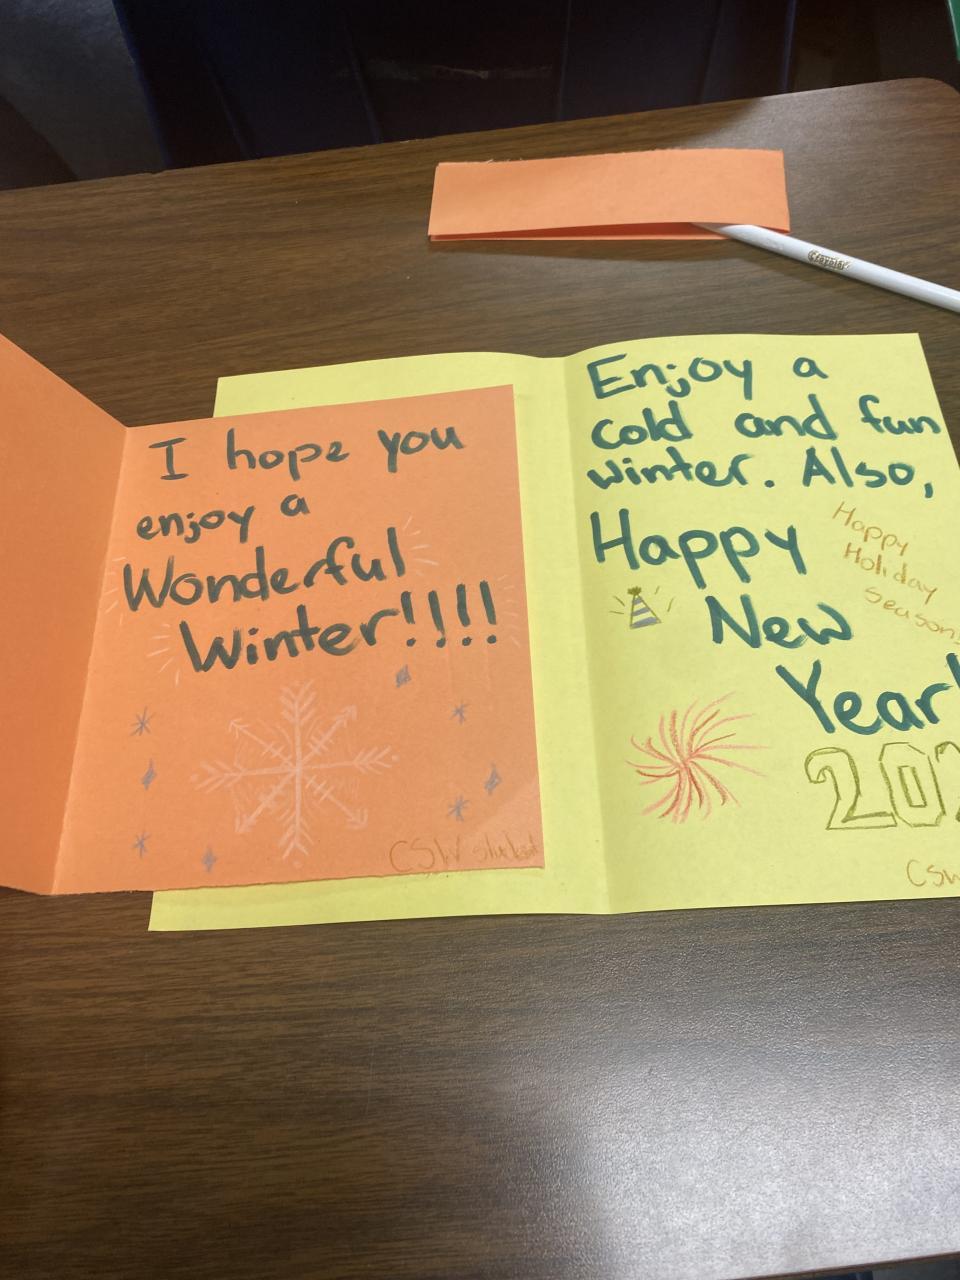 Crayola
I hope you
enjoy a
Wonderful
Winter!!!!
CSW student
Enjoy a
cold and fun
winter. Also,
Happy
New
Year!
Happy
Holiday
Season!
202
CSW